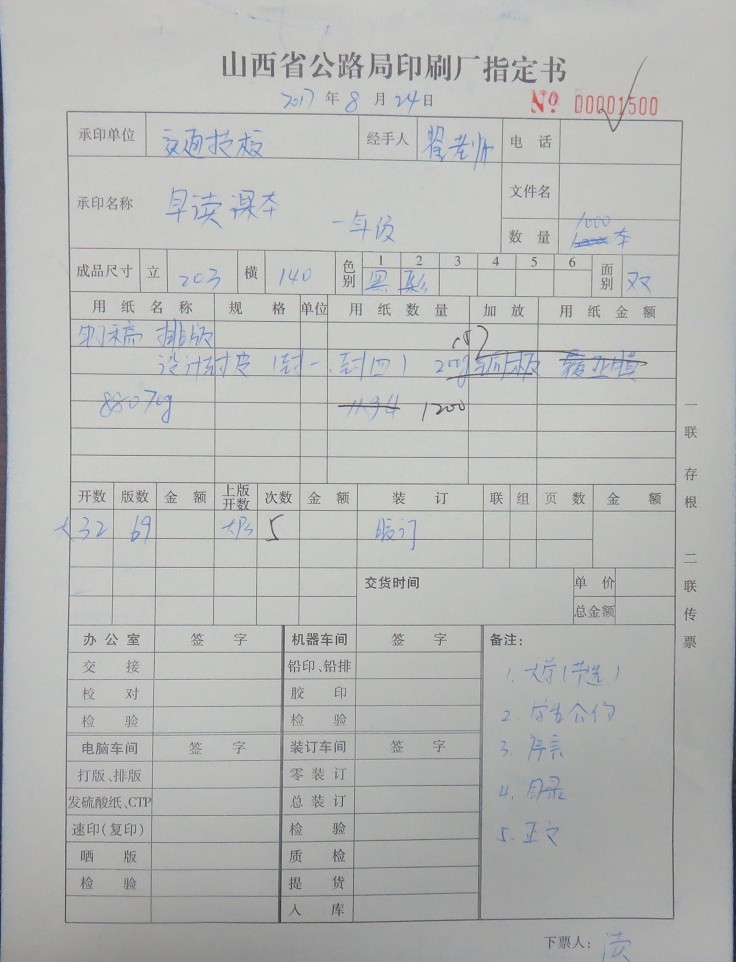 山西省公路局印刷厂指定书
2017 年 8 月 24 日 № 00001500
承印单位 交通技校 经手人 翟老师 电 话
承印名称 早读课本 一年级 文件名
数 量 1000 本
成品尺寸 立 203 横 140 色别 1 2 3 4 5 6 面别 双
黑 彩
用 纸 名 称 规 格 单位 用 纸 数 量 加 放 用 纸 金 额
排版
设计封皮(封一、封四) 200g铜板
88070g 1134 1200
开数 版数 金 额 上版开数 次数 金 额 装 订 联 组 页 数 金 额
大32 69 5 胶订
交货时间 单 价
总金额
办 公 室 签 字 机器车间 签 字 备注:
交 接 铅印、铅排 1. 大学(节选)
校 对 胶 印 2.
检 验 检 验 3. 序言
电脑车间 签 字 装订车间 签 字
打版、排版 零 装 订 4. 目录
发硫酸纸、CTP 总 装 订
速印(复印) 检 验 5. 正文
晒 版 质 检
检 验 提 货
入 库
下票人:
一联存根 二联传票